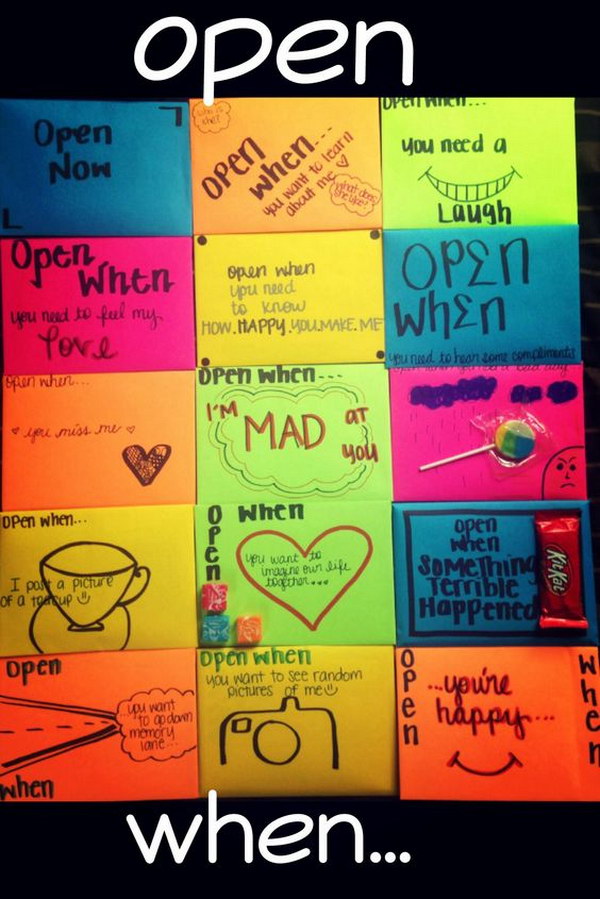 open
Open
Now
who is
she?
OPEN
when...
you want to learn
about me
what does
she like?
Open when...
you need a
Laugh
Open
When
you need to feel my
love
open when
you need
to know
HOW.HAPPY.YOU.MAKE.ME
OPEN
WHEN
you need to hear some compliments
open when...
you miss me
Open when...
I'M
MAD
AT
you
open when...
I post a picture
of a teacup
OPEN
when
you want to
imagine our life
together...
open
when
SOMEThing
Terrible
Happened
KitKat
OPEN
when
you want
to go down
memory
lane...
Open when
you want to see random
pictures of me
OPEN
when
...you're
happy...
when...